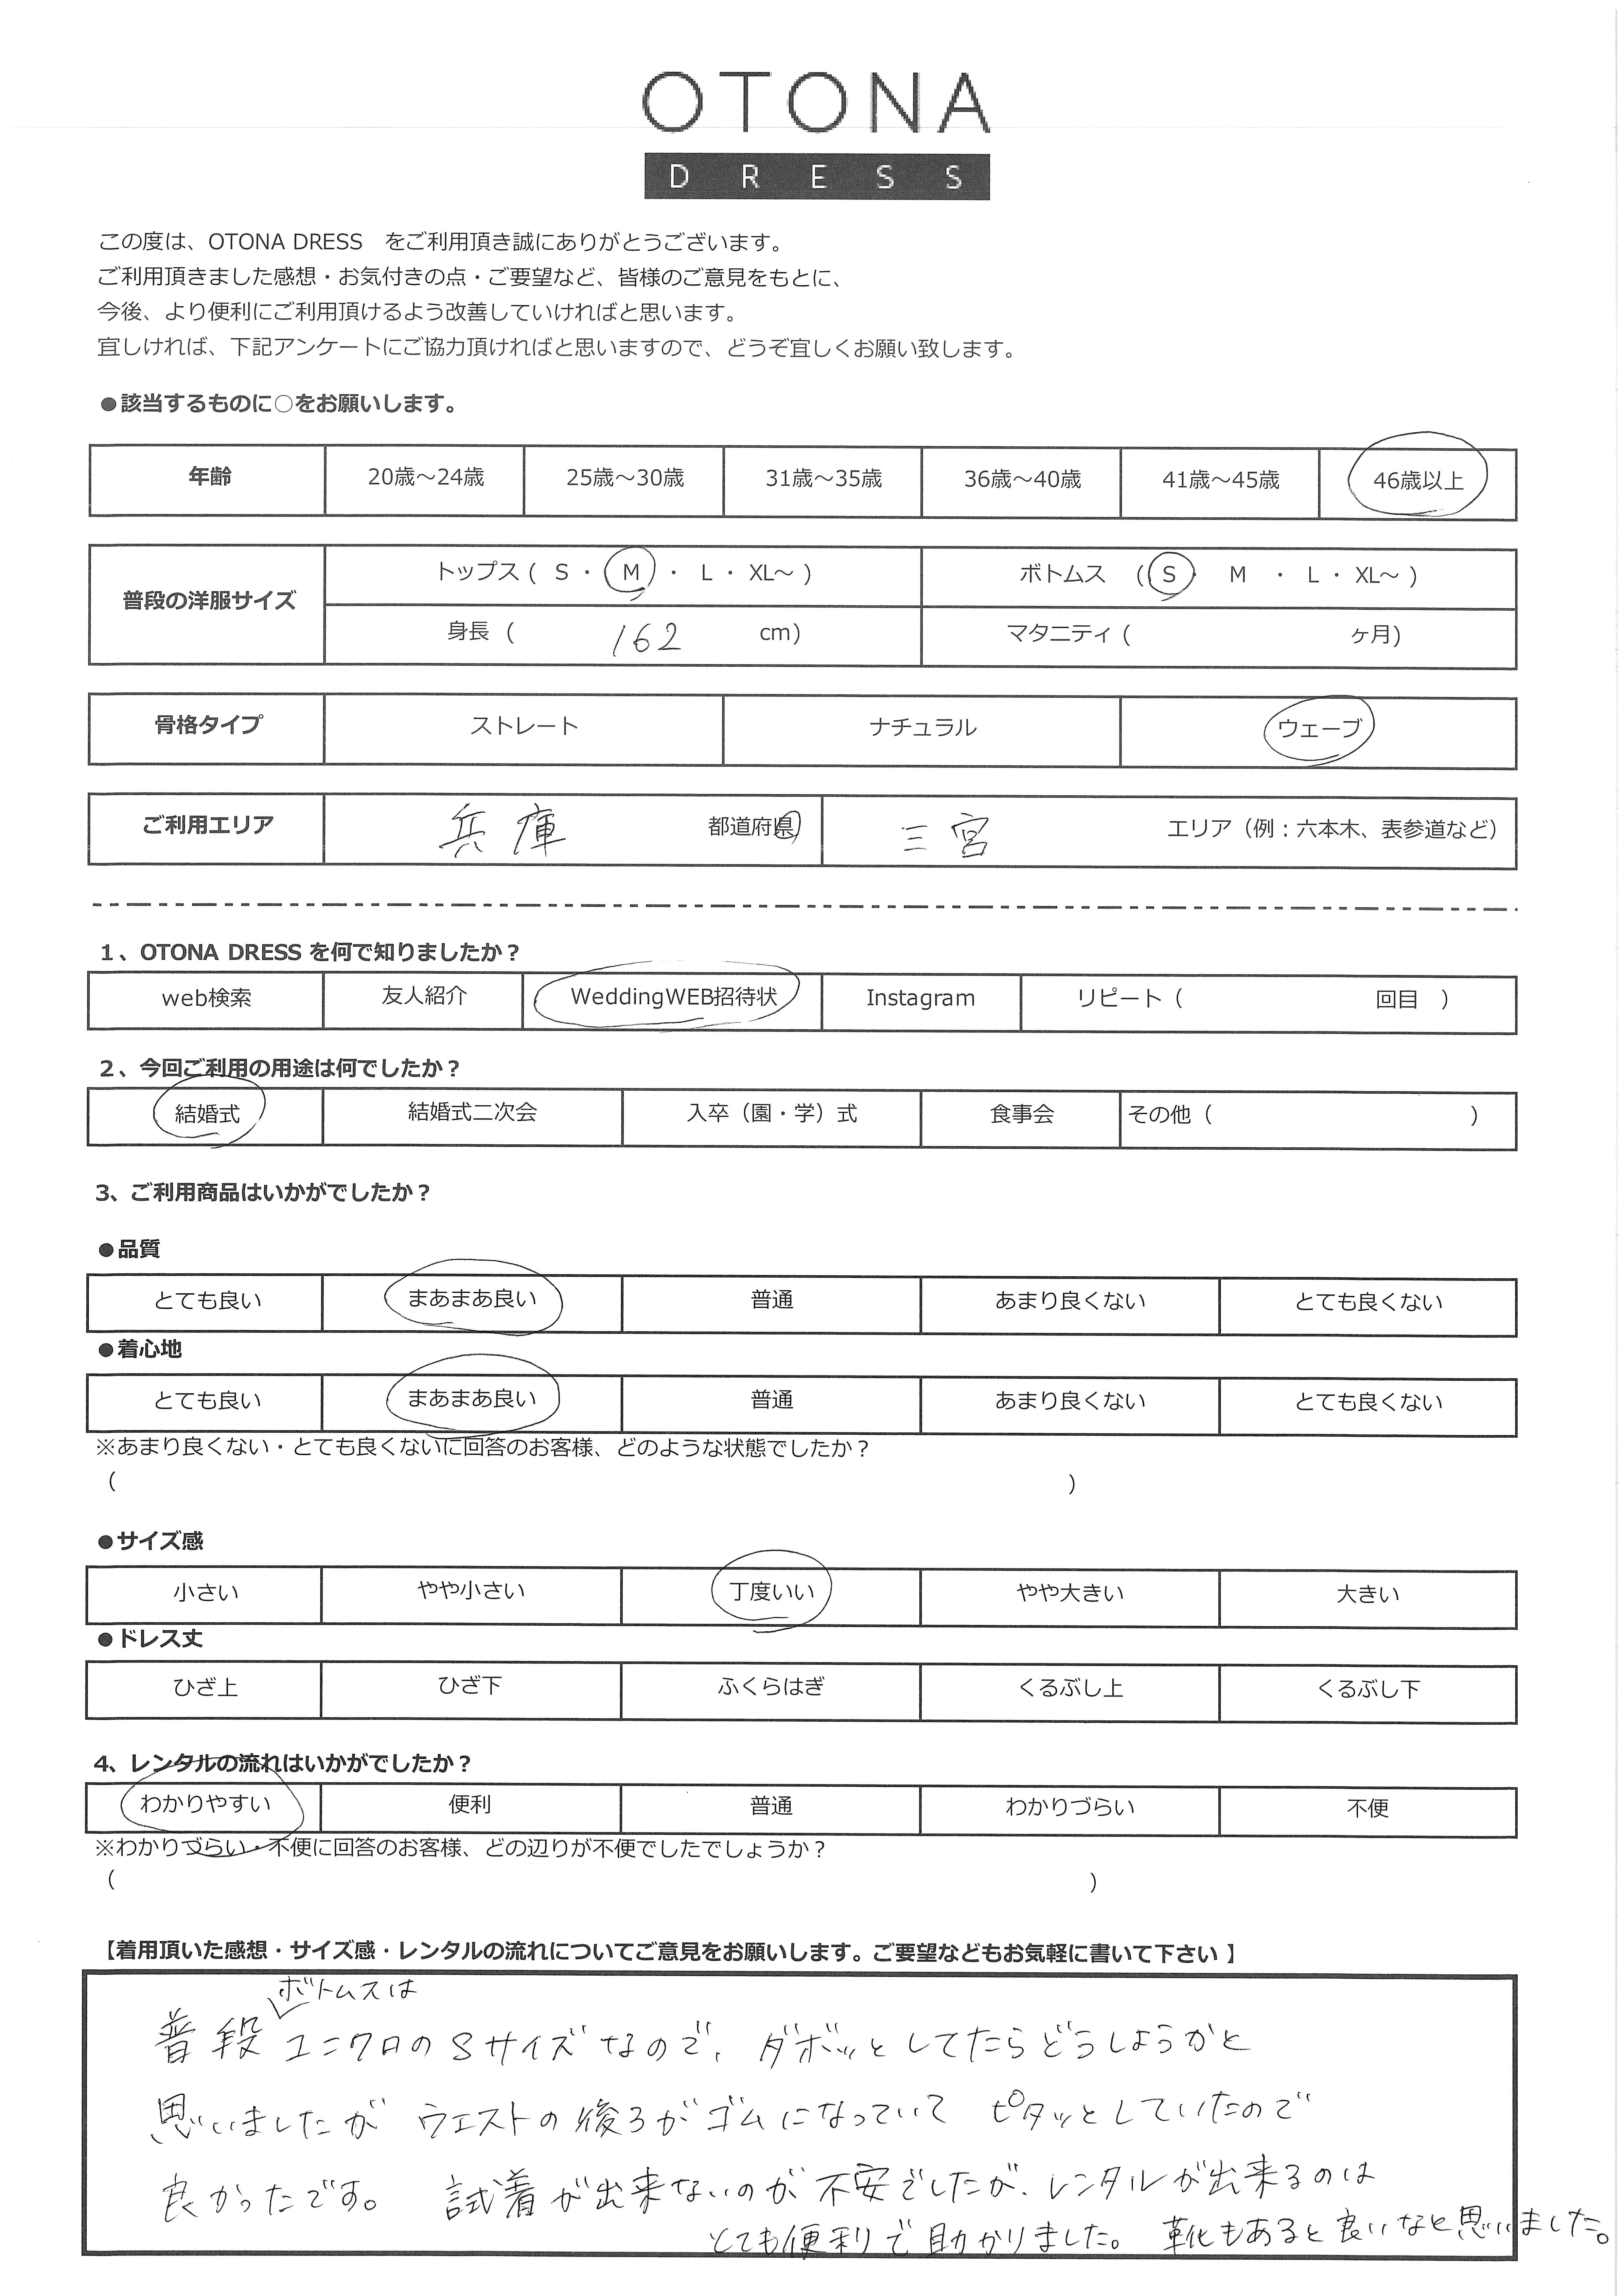 OTONA
DRESS
この度は、OTONA DRESS をご利用頂き誠にありがとうございます。
ご利用頂きました感想・お気付きの点・ご要望など、皆様のご意見をもとに、
今後、より便利にご利用頂けるよう改善していければと思います。
宜しければ、下記アンケートにご協力頂ければと思いますので、どうぞ宜しくお願い致します。
●該当するものに○をお願いします。
年齢 20歳～24歳 25歳～30歳 31歳～35歳 36歳～40歳 41歳～45歳 46歳以上
普段の洋服サイズ トップス ( S ・ M ・ L ・ XL～ ) ボトムス ( S ・ M ・ L ・ XL～ )
身長 ( 162 cm) マタニティ ( ヶ月)
骨格タイプ ストレート ナチュラル ウェーブ
ご利用エリア 兵庫 都道府県 三宮 エリア（例：六本木、表参道など）
1、OTONA DRESS を何で知りましたか？
web検索 友人紹介 WeddingWEB招待状 Instagram リピート（ 回目 ）
2、今回ご利用の用途は何でしたか？
結婚式 結婚式二次会 入卒（園・学）式 食事会 その他（ ）
3、ご利用商品はいかがでしたか？
●品質
とても良い まあまあ良い 普通 あまり良くない とても良くない
●着心地
とても良い まあまあ良い 普通 あまり良くない とても良くない
※あまり良くない・とても良くないに回答のお客様、どのような状態でしたか？
（ ）
●サイズ感
小さい やや小さい 丁度いい やや大きい 大きい
●ドレス丈
ひざ上 ひざ下 ふくらはぎ くるぶし上 くるぶし下
4、レンタルの流れはいかがでしたか？
わかりやすい 便利 普通 わかりづらい 不便
※わかりづらい・不便に回答のお客様、どの辺りが不便でしたでしょうか？
（ ）
【着用頂いた感想・サイズ感・レンタルの流れについてご意見をお願いします。ご要望などもお気軽に書いて下さい】
ボトムスは
普段 ユニクロのSサイズなので、ダボッとしてたらどうしようかと
思いましたが ウエストの後ろがゴムになっていて ピタッとしていたので
良かったです。 試着が出来ないのが不安でしたが、レンタルが出来るのは
とても便利で助かりました。 靴もあると良いなと思いました。